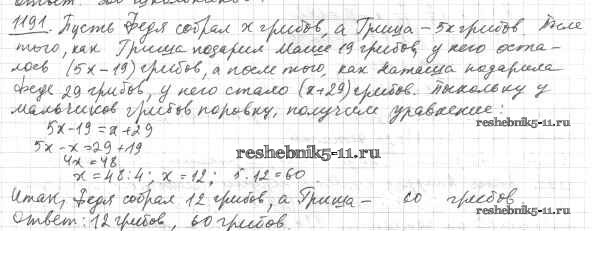 1191. Пусть Федя собрал x грибов, а Гриша – 5x грибов. После
того, как Гриша подарил Маше 19 грибов, у него оста-
лось (5x-19) грибов, а после того, как Наташа подарила
Феде 29 грибов, у него стало (x+29) грибов. Поскольку у
мальчиков грибов поровну, получаем уравнение:
5x-19=x+29
5x-x=29+19
4x=48
x=48:4; x=12; 5·12=60
reshebnik5-11.ru
Итак, Федя собрал 12 грибов, а Гриша – 60 грибов
reshebnik5-11.ru
Ответ: 12 грибов, 60 грибов.